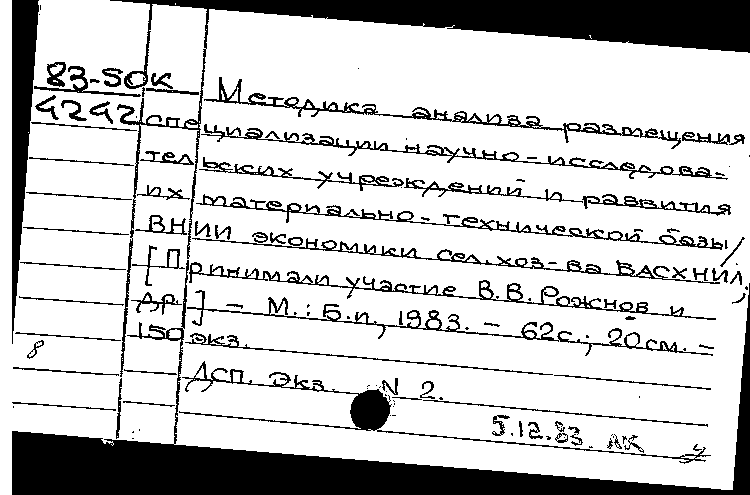 83-5ОК Методика анализа размещения
4242 специализации научно-исследова-
тельских учреждений и развития
их материально-технической базы/
ВНИИ экономики сел.хоз-ва ВАСХНИЛ;
[Принимали участие В.В. Рожнов и
др.] - М.: Б.и., 1983. - 62с.; 20см. -
150 экз.
8
Дсп. Экз. N 2.
5.12.83. АК